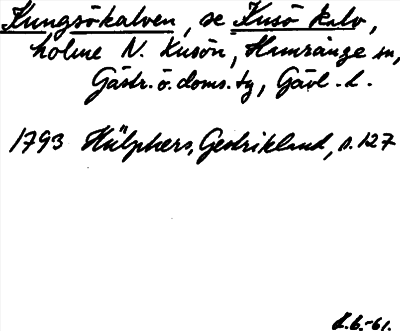 Kungsökalven, se Kusö kalv,
holme N. Kusön, Hamrånge sn,
Gästr. ö. doms. tg, Gävl. l.
1793 Hülphers, Gestrikland, s. 127
L.6.-61.